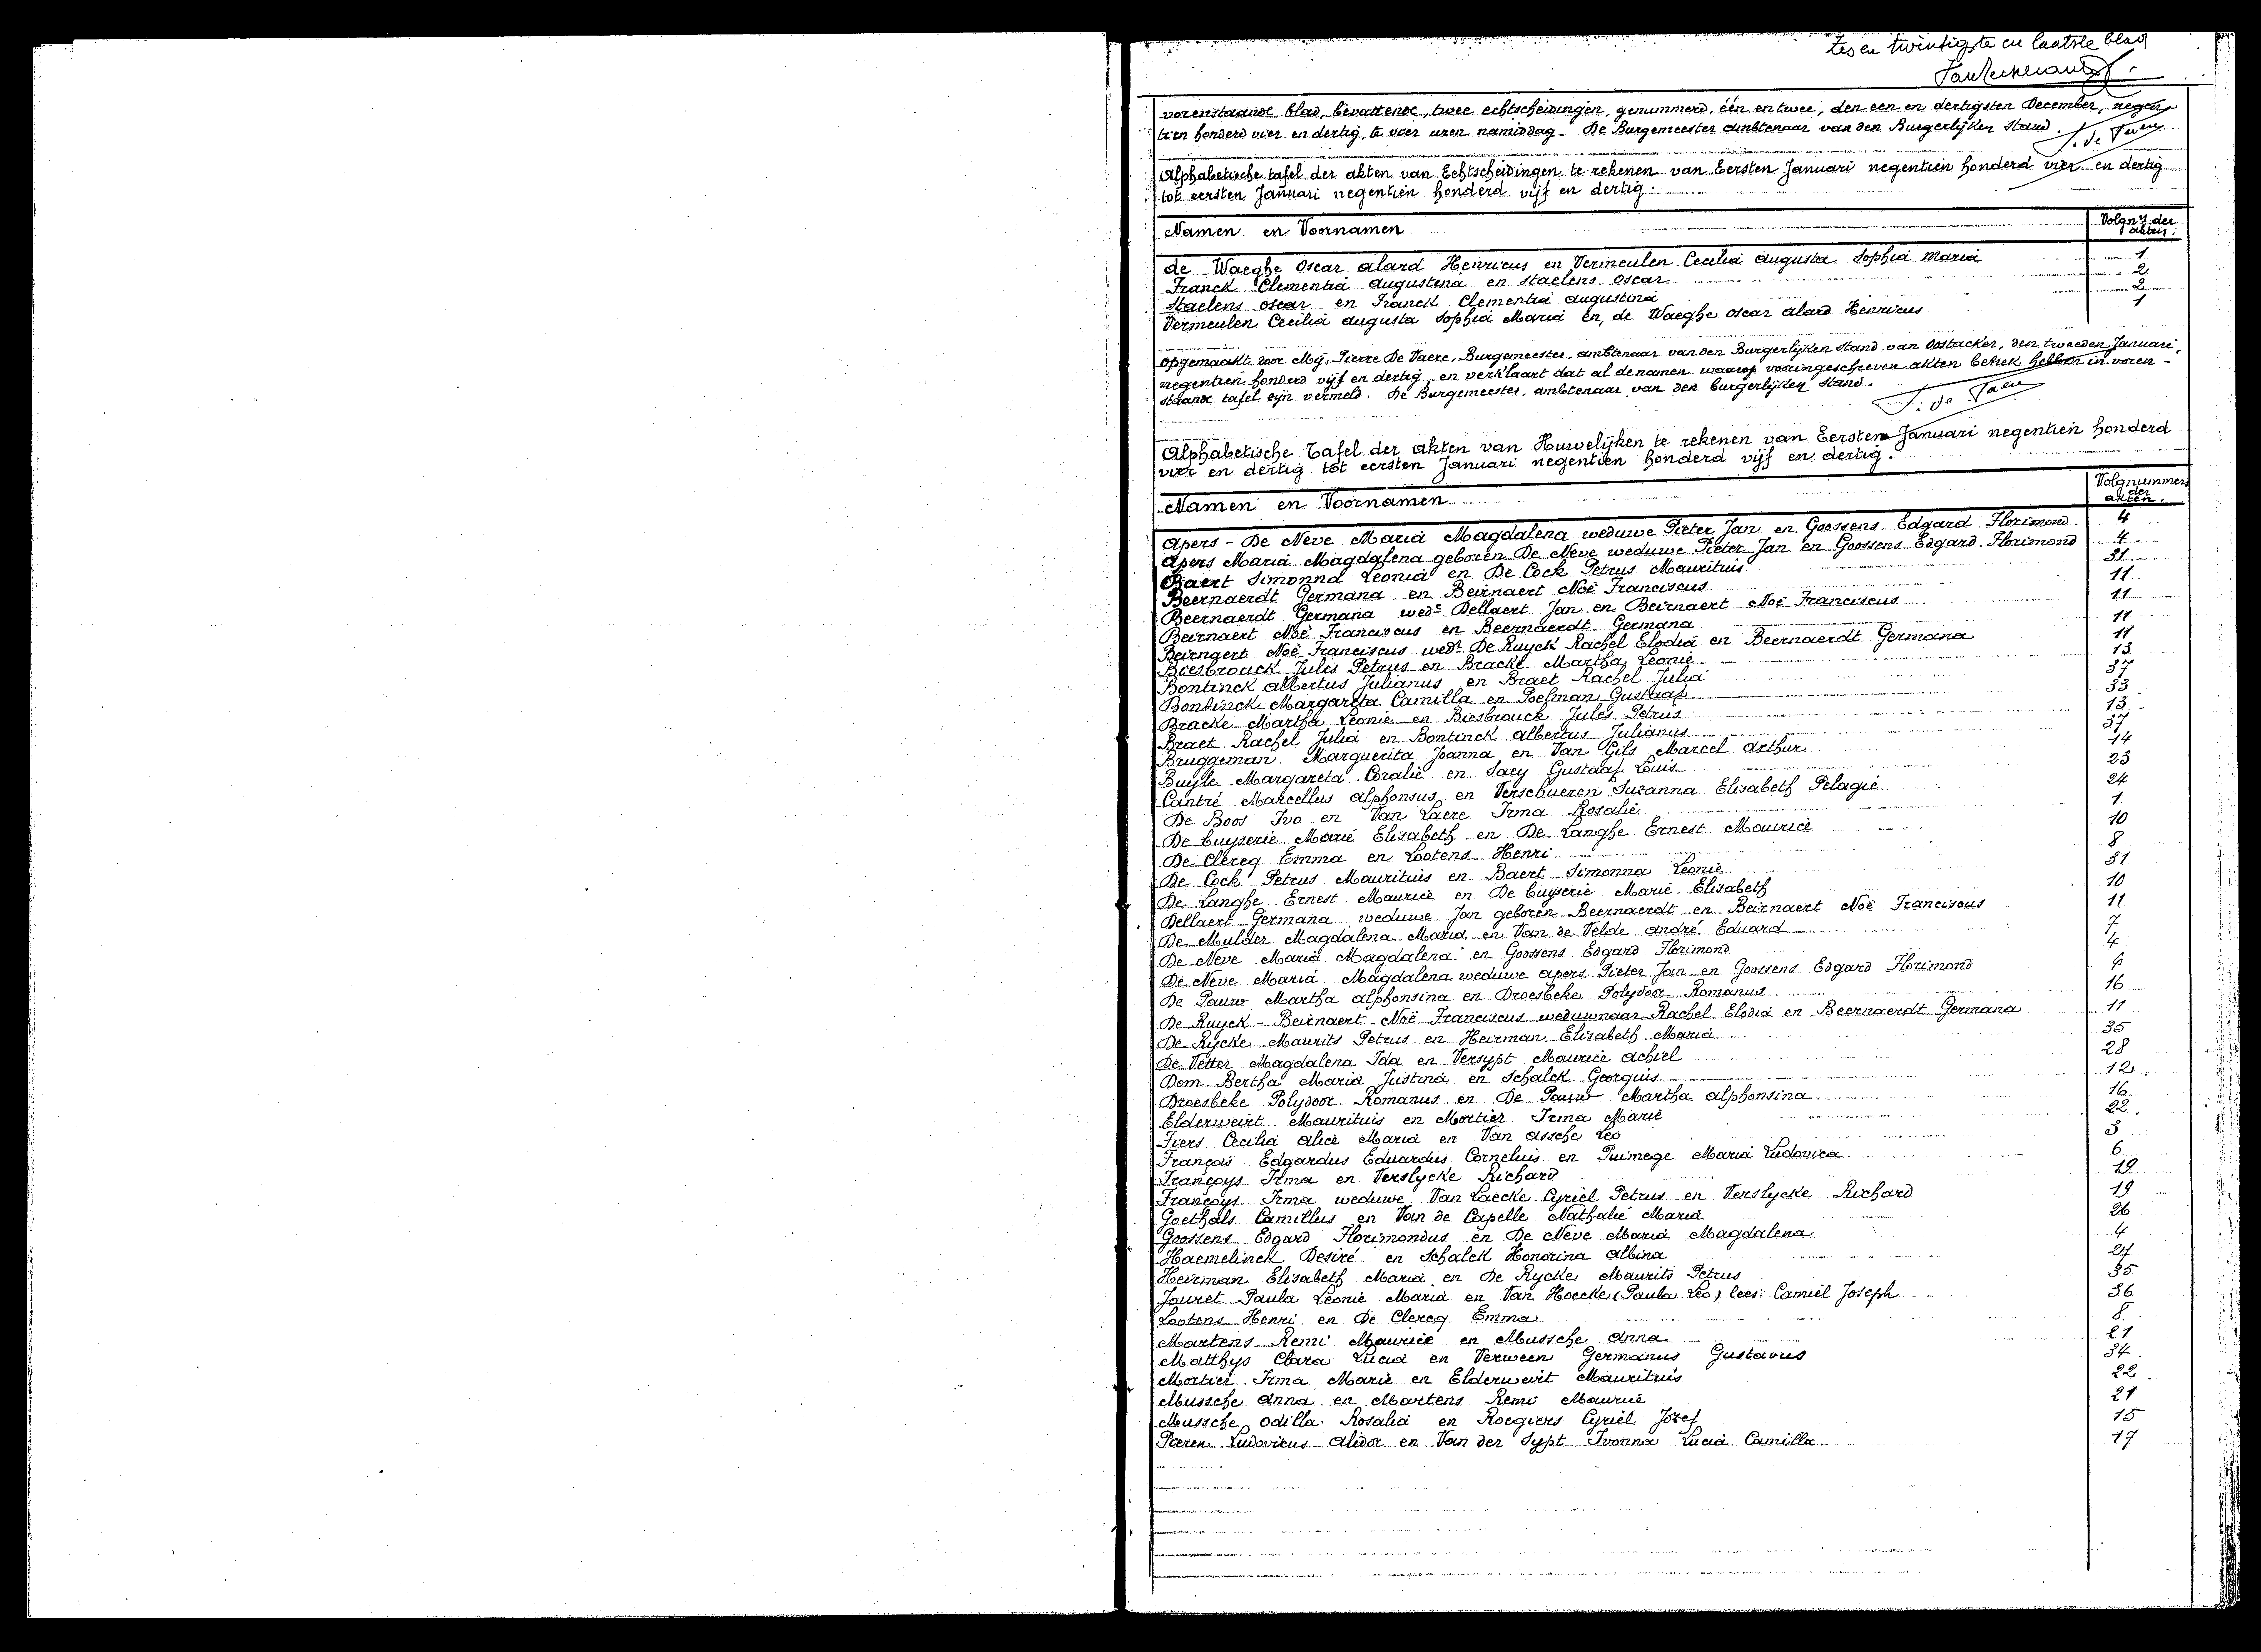 Zes en twintigste en laatste blad
vorenstaande blad, bevattende, twee echtscheidingen, genummerd, één en twee, den een en dertigsten December, negen
tien honderd vier en dertig, te vier uren namiddag. De Burgemeester ambtenaar van den Burgerlijken Stand.
Alphabetische tafel der akten van Echtscheidingen te rekenen van Eersten Januari negentien honderd vier en dertig
tot eersten Januari negentien honderd vijf en dertig.
Namen en Voornamen Volgnrs der akten.
de Waeghe Oscar Alard Henricus en Vermeulen Cecilia Augusta Sophia Maria 1
Franck Clementia Augustina en Staelens Oscar 2
Staelens Oscar en Franck Clementia Augustina 2
Vermeulen Cecilia Augusta Sophia Maria en, de Waeghe Oscar Alard Henricus 1
Opgemaakt door Mij, Pierre De Vaere, Burgemeester, ambtenaar van den Burgerlijken Stand van Oostacker, den tweeden Januari,
negentien honderd vijf en dertig, en verklaart dat al de namen waarop vooringeschreven akten betrek hebben in voren-
staande tafel zijn vermeld. De Burgemeester, ambtenaar van den burgerlijken Stand.
Alphabetische Tafel der akten van Huwelijken te rekenen van Eersten Januari negentien honderd
vier en dertig tot eersten Januari negentien honderd vijf en dertig.
Namen en Voornamen Volgnummers der akten.
Apers - De Neve Maria Magdalena weduwe Pieter Jan en Goossens Edgard Florimond. 4
Apers Maria Magdalena geboren De Neve weduwe Pieter Jan en Goossens Edgard Florimond 4
Baert Simonna Leonia en De Cock Petrus Mauritius 31
Beernaerdt Germana en Beirnaert Noë Franciscus 11
Beernaerdt Germana wede Dellaert Jan en Beirnaert Noë Franciscus 11
Beirnaert Noë Franciscus en Beernaerdt Germana 11
Beirnaert Noë Franciscus wedr De Ruyck Rachel Elodia en Beernaerdt Germana 11
Biesbrouck Jules Petrus en Bracke Martha Leonie 13
Bontinck Albertus Julianus en Braet Rachel Julia 37
Bontinck Margareta Camilla en Poelman Gustaaf 33
Bracke Martha Leonie en Biesbrouck Jules Petrus 13
Braet Rachel Julia en Bontinck Albertus Julianus 37
Bruggeman Marguerita Joanna en Van Gils Marcel Arthur 14
Buyle Margareta Coralie en Saey Gustaaf Louis 23
Cantré Marcellus Alphonsus en Verschueren Suzanna Elisabeth Pelagie 24
De Boos Ivo en Van Laere Irma Rosalie 1
De Cuyserie Marie Elisabeth en De Langhe Ernest Maurice 10
De Clercq Emma en Lootens Henri 8
De Cock Petrus Mauritius en Baert Simonna Leonie 31
De Langhe Ernest Maurice en De Cuyserie Marie Elisabeth 10
Dellaert Germana weduwe Jan geboren Beernaerdt en Beirnaert Noë Franciscus 11
De Mulder Magdalena Maria en Van de Velde André Eduard 7
De Neve Maria Magdalena en Goossens Edgard Florimond 4
De Neve Maria Magdalena weduwe Apers Pieter Jan en Goossens Edgard Florimond 4
De Pauw Martha Alphonsina en Droesbeke Polydoor Romanus 16
De Ruyck - Beirnaert Noë Franciscus weduwnaar Rachel Elodia en Beernaerdt Germana 11
De Rycke Maurits Petrus en Heirman Elisabeth Maria 35
De Vetter Magdalena Ida en Versypt Maurice Achiel 28
Dom Bertha Maria Justina en Schalck Georgius 12
Droesbeke Polydoor Romanus en De Pauw Martha Alphonsina 16
Elderweirt Mauritius en Mortier Irma Marie 22
Fiers Cecilia Alice Maria en Van Assche Leo 3
François Edgardus Eduardus Cornelius en Puimege Maria Ludovica 6
Françoys Irma en Verslycke Richard 19
Françoys Irma weduwe Van Laecke Cyriel Petrus en Verslycke Richard 19
Goethals Camillus en Van de Capelle Nathalie Maria 26
Goossens Edgard Florimondus en De Neve Maria Magdalena 4
Haemelinck Desiré en Schalck Honorina Albina 27
Heirman Elisabeth Maria en De Rycke Maurits Petrus 35
Jouret Paula Leonie Maria en Van Hoecke (Paula Leo) lees: Camiel Joseph 36
Lootens Henri en De Clercq Emma 8
Martens Remi Maurice en Mussche Anna 21
Matthys Clara Lucia en Verween Germanus Gustavus 34
Mortier Irma Marie en Elderweirt Mauritius 22
Mussche Anna en Martens Remi Maurice 21
Mussche Odilla Rosalia en Roegiers Cyriel Jozef 15
Pieren Ludovicus Alidor en Van der Sypt Ivonna Lucia Camilla 17